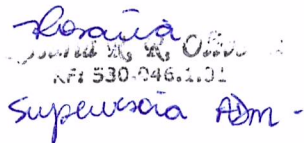 Rosana
R. R. Oliv
RF: 530.046.1.01
Supervisora ADM -